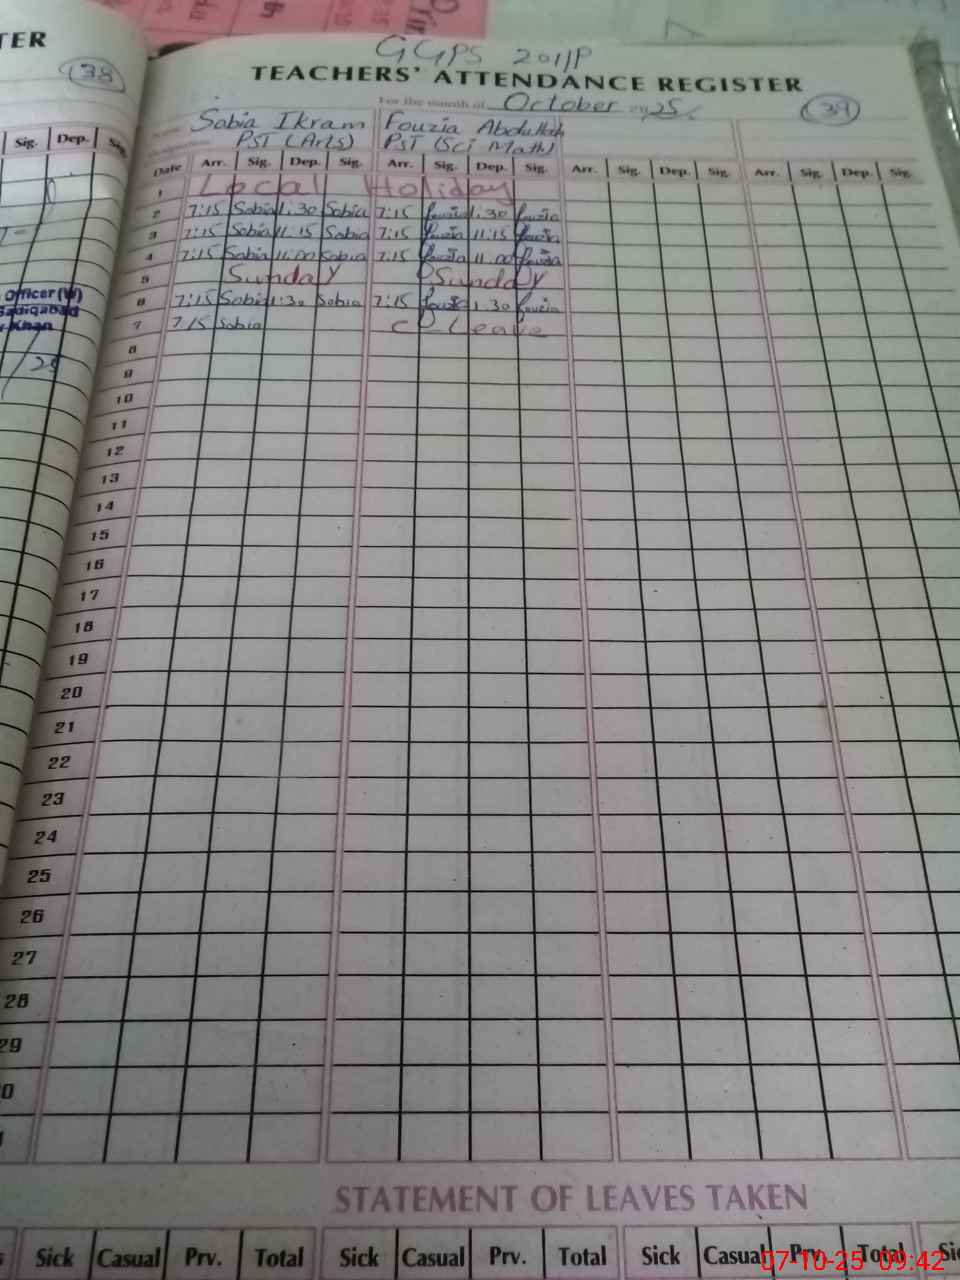 TER
38
GGPS 201/P
TEACHERS' ATTENDANCE REGISTER
39
For the month of October 2025
Name Sabia Ikram Fouzia Abdullah
PST (Arts) PST (Sci Math)
Sig. Dep. Sig.
Date Arr. Sig. Dep. Sig. Arr. Sig. Dep. Sig. Arr. Sig. Dep. Sig. Arr. Sig. Dep. Sig.
1 Local Holiday
2 7:15 Sabia 1:30 Sabia 7:15 fouzia 1:30 fouzia
3 7:15 Sabia 11.15 Sabia 7:15 fouzia 11:15 fouzia
4 7:15 Sabia 11.00 Sabia 7:15 fouzia 11.00 fouzia
5 Sunday Sunday
6 7:15 Sabia 1:30 Sabia 7:15 fouzia 1.30 fouzia
7 7:15 Sabia C Leave
Officer (W)
Sadiqabad
Khan
25
8
9
10
11
12
13
14
15
16
17
18
19
20
21
22
23
24
25
26
27
28
29
0
STATEMENT OF LEAVES TAKEN
Sick Casual Prv. Total Sick Casual Prv. Total Sick Casual Prv. Total
07-10-25 09:42